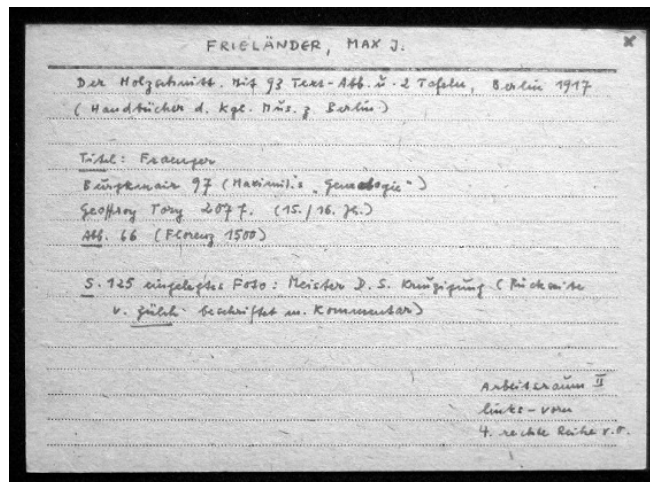 FRIELÄNDER, MAX J. x
Der Holzschnitt. Mit 93 Text-Abb. u. 2 Tafeln, Berlin 1917
(Handbücher d. Kgl. Mus. z. Berlin)
Titel: Fraenger
Burgkmair 97 (Maximil.s „Genealogie")
Geoffroy Tory 207 f. (15./16. Jh.)
Abb. 66 (Florenz 1500)
S. 125 eingelegtes Foto: Meister D. S. Kreuzigung (Rückseite
v. Zülch beschriftet m. Kommentar)
Arbeitsraum II
links - vorn
4. rechte Reihe v. o.